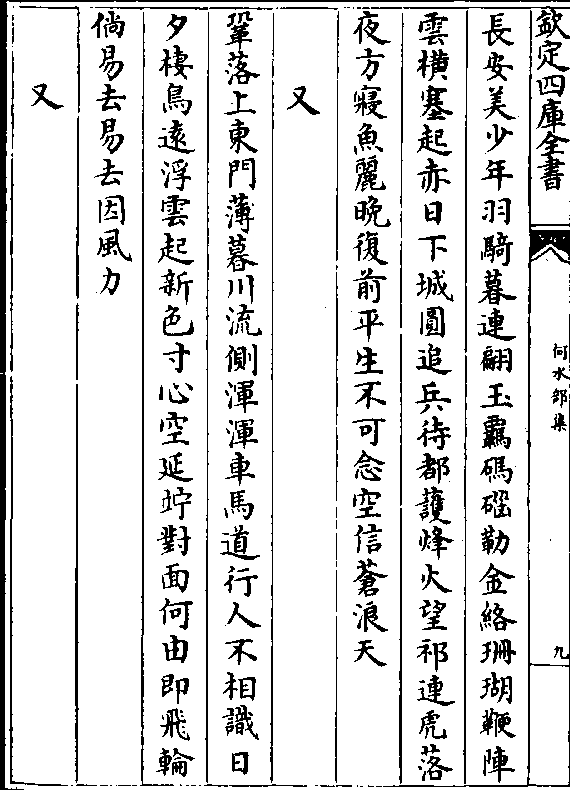 欽定四庫全書
何水部集
九
長安美少年羽騎暮連翩玉羈碼碯勒金絡珊瑚鞭陣
雲橫塞起赤日下城圓追兵待都護烽火望祁連虎落
夜方寢魚麗晩復前平生不可念空信蒼浪天
又
鞏落上東門薄暮川流側渾渾車馬道行人不相識日
夕棲鳥遠浮雲起新色寸心空延竚對面何由即飛輪
倘易去易去因風力
又